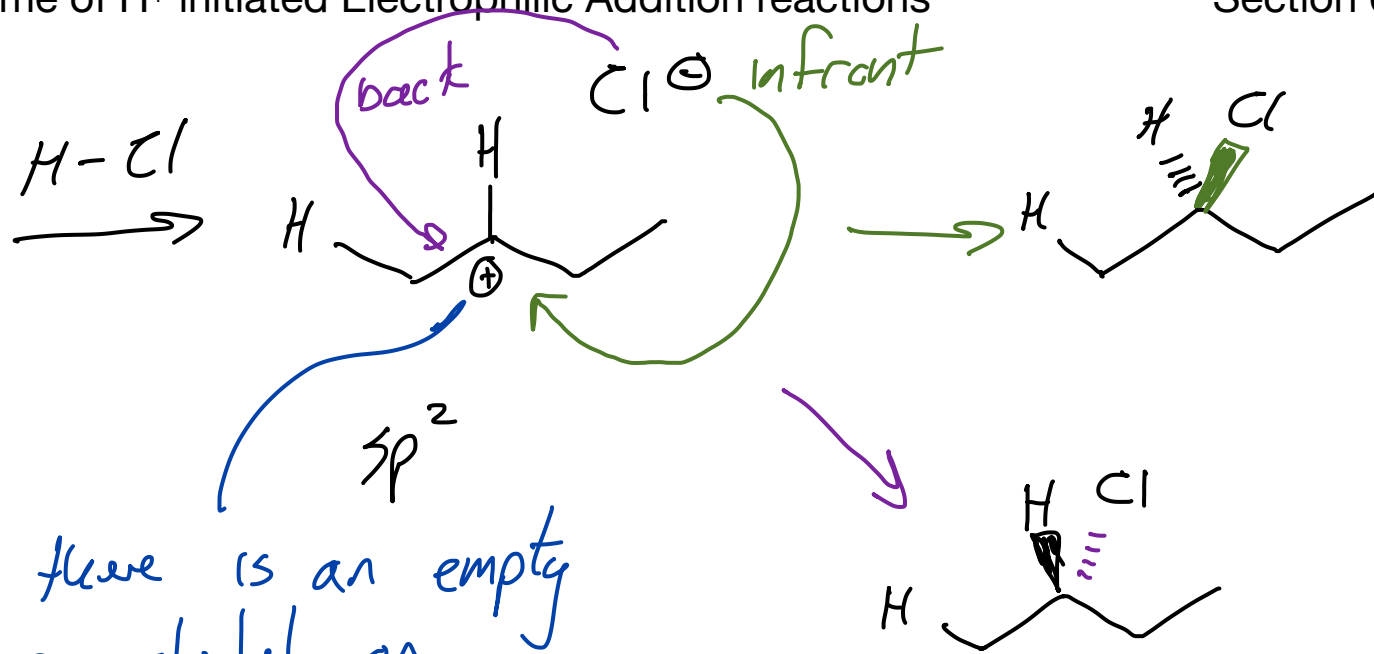 me of H⁺ Initiated Electrophilic Addition reactions
Section
back
Cl ⊖
infront
H
H
Cl
H – Cl
H
H
⊕
sp²
H
Cl
there is an empty
H
on